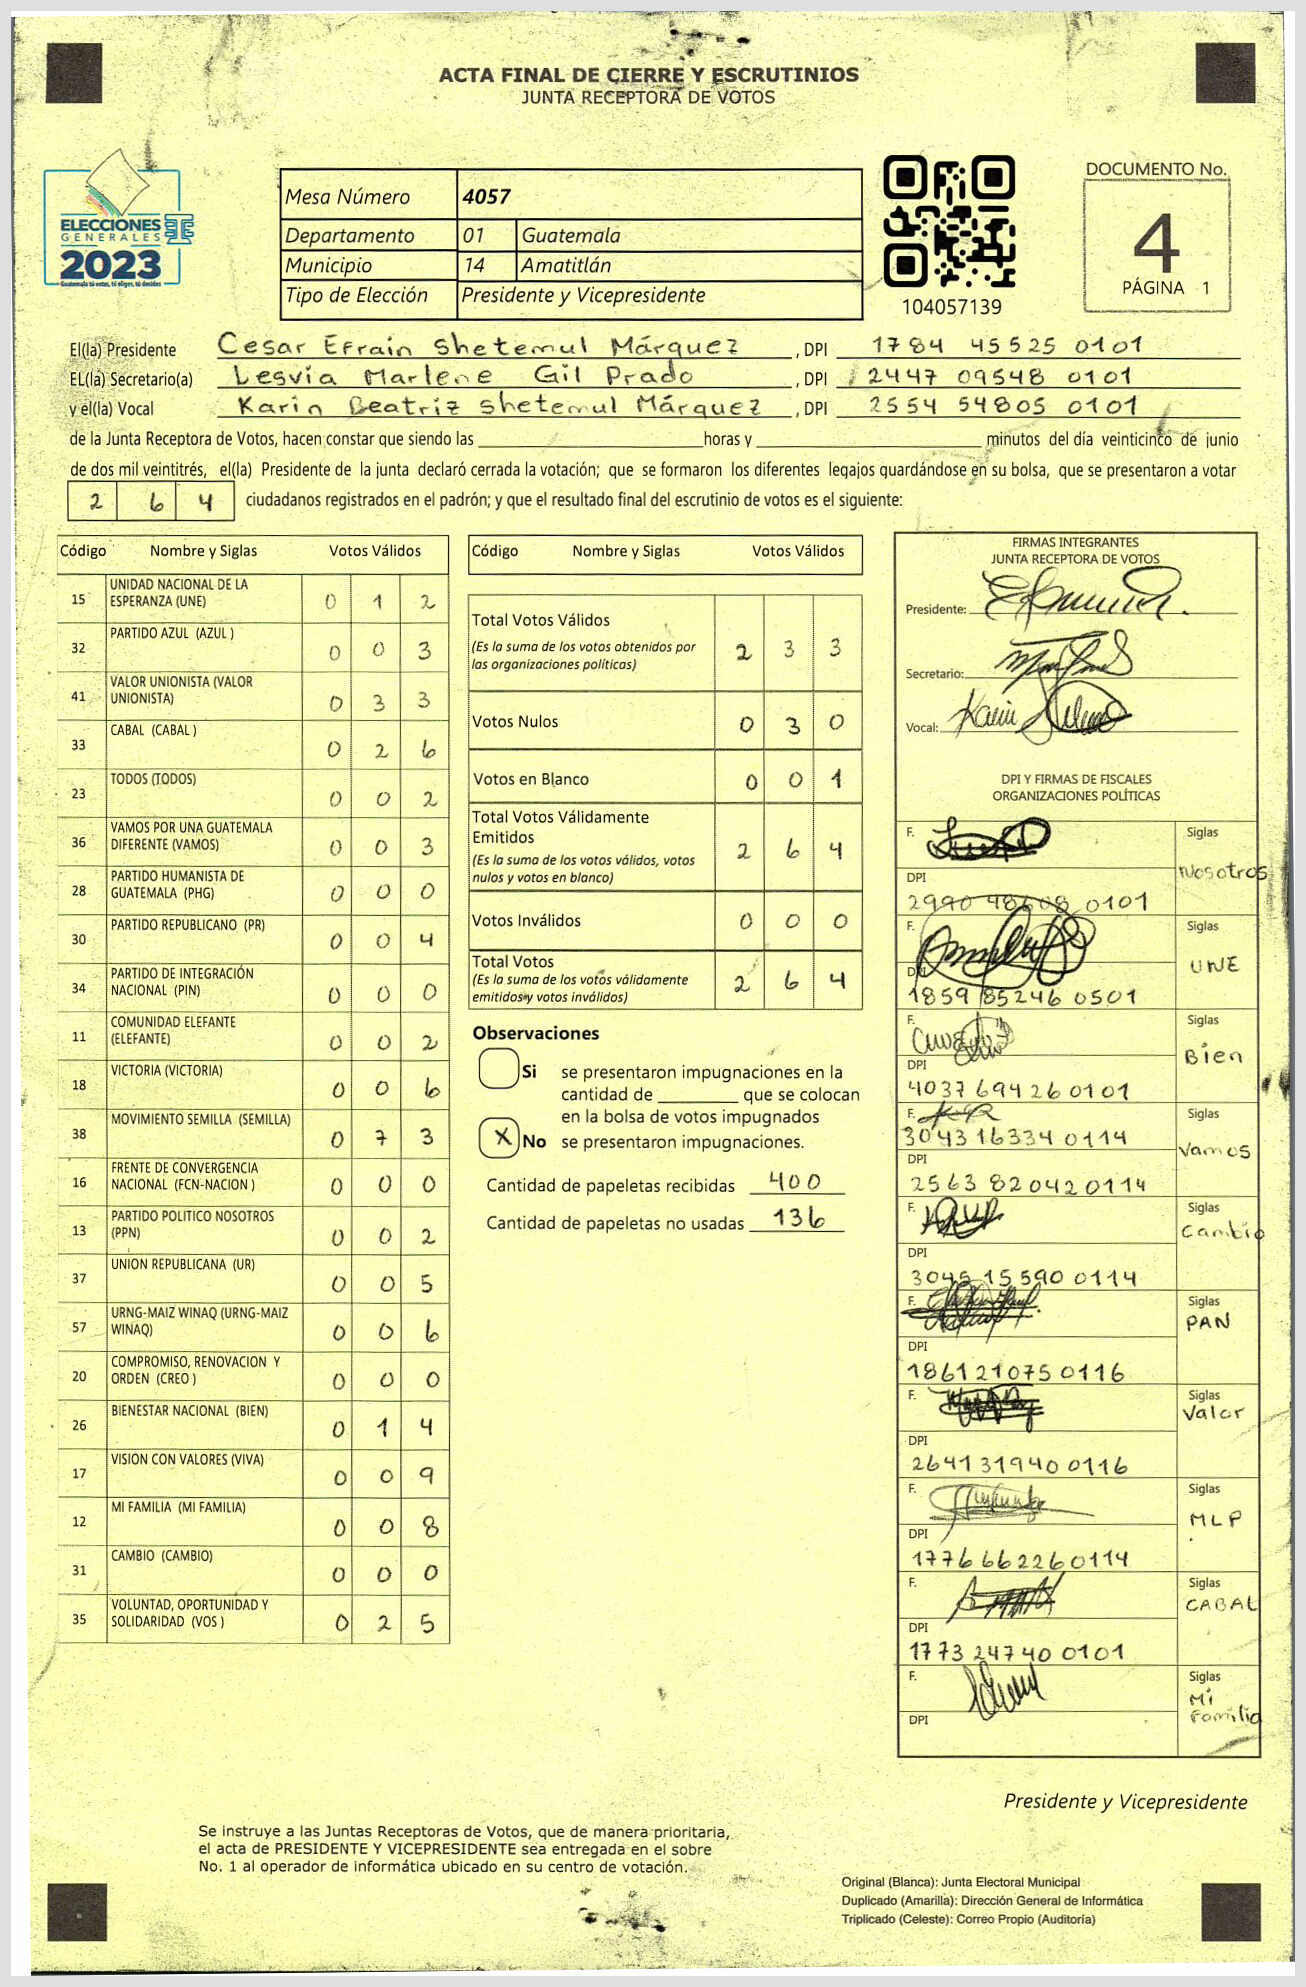 ACTA FINAL DE CIERRE Y ESCRUTINIOS
JUNTA RECEPTORA DE VOTOS
ELECCIONES
GENERALES
2023
Guatemala tú votas, tú eliges, tú decides
Mesa Número 4057
Departamento 01 Guatemala
Municipio 14 Amatitlán
Tipo de Elección Presidente y Vicepresidente
104057139
DOCUMENTO No.
4
PÁGINA 1
El(la) Presidente Cesar Efrain Shetemul Márquez , DPI 1784 45525 0101
EL(la) Secretario(a) Lesvia Marlene Gil Prado , DPI 2447 09548 0101
y el(la) Vocal Karin Beatriz Shetemul Márquez , DPI 2554 54805 0101
de la Junta Receptora de Votos, hacen constar que siendo las horas y minutos del día veinticinco de junio
de dos mil veintitrés, el(la) Presidente de la junta declaró cerrada la votación; que se formaron los diferentes legajos quardándose en su bolsa, que se presentaron a votar
2 6 4 ciudadanos registrados en el padrón; y que el resultado final del escrutinio de votos es el siguiente:
Código Nombre y Siglas Votos Válidos
15 UNIDAD NACIONAL DE LA ESPERANZA (UNE) 0 1 2
32 PARTIDO AZUL (AZUL ) 0 0 3
41 VALOR UNIONISTA (VALOR UNIONISTA) 0 3 3
33 CABAL (CABAL ) 0 2 6
23 TODOS (TODOS) 0 0 2
36 VAMOS POR UNA GUATEMALA DIFERENTE (VAMOS) 0 0 3
28 PARTIDO HUMANISTA DE GUATEMALA (PHG) 0 0 0
30 PARTIDO REPUBLICANO (PR) 0 0 4
34 PARTIDO DE INTEGRACIÓN NACIONAL (PIN) 0 0 0
11 COMUNIDAD ELEFANTE (ELEFANTE) 0 0 2
18 VICTORIA (VICTORIA) 0 0 6
38 MOVIMIENTO SEMILLA (SEMILLA) 0 7 3
16 FRENTE DE CONVERGENCIA NACIONAL (FCN-NACION ) 0 0 0
13 PARTIDO POLITICO NOSOTROS (PPN) 0 0 2
37 UNION REPUBLICANA (UR) 0 0 5
57 URNG-MAIZ WINAQ (URNG-MAIZ WINAQ) 0 0 6
20 COMPROMISO, RENOVACION Y ORDEN (CREO ) 0 0 0
26 BIENESTAR NACIONAL (BIEN) 0 1 4
17 VISION CON VALORES (VIVA) 0 0 9
12 MI FAMILIA (MI FAMILIA) 0 0 8
31 CAMBIO (CAMBIO) 0 0 0
35 VOLUNTAD, OPORTUNIDAD Y SOLIDARIDAD (VOS ) 0 2 5
Código Nombre y Siglas Votos Válidos
Total Votos Válidos 2 3 3
(Es la suma de los votos obtenidos por
las organizaciones políticas)
Votos Nulos 0 3 0
Votos en Blanco 0 0 1
Total Votos Válidamente
Emitidos 2 6 4
(Es la suma de los votos válidos, votos
nulos y votos en blanco)
Votos Inválidos 0 0 0
Total Votos 2 6 4
(Es la suma de los votos válidamente
emitidos y votos inválidos)
Observaciones
Si se presentaron impugnaciones en la
cantidad de que se colocan
en la bolsa de votos impugnados
X No se presentaron impugnaciones.
Cantidad de papeletas recibidas 400
Cantidad de papeletas no usadas 136
FIRMAS INTEGRANTES
JUNTA RECEPTORA DE VOTOS
Presidente:
Secretario:
Vocal: Karin
DPI Y FIRMAS DE FISCALES
ORGANIZACIONES POLÍTICAS
F. Siglas
Nosotros
DPI
2990 48608 0101
F. Siglas
UNE
DPI
1859 85246 0501
F. Siglas
Bien
DPI
4037 69426 0101
F. Siglas
3043 16334 0114
Vamos
DPI
2563 82042 0114
F. Siglas
Cambio
DPI
3045 15590 0114
F. Siglas
PAN
DPI
1861 21075 0116
F. Siglas
Valor
DPI
2641 31940 0116
F. Siglas
MLP
DPI
1776 66226 0114
F. Siglas
CABAL
DPI
1773 24740 0101
F. Siglas
Mi
Familia
DPI
Presidente y Vicepresidente
Se instruye a las Juntas Receptoras de Votos, que de manera prioritaria,
el acta de PRESIDENTE Y VICEPRESIDENTE sea entregada en el sobre
No. 1 al operador de informática ubicado en su centro de votación.
Original (Blanca): Junta Electoral Municipal
Duplicado (Amarilla): Dirección General de Informática
Triplicado (Celeste): Correo Propio (Auditoría)